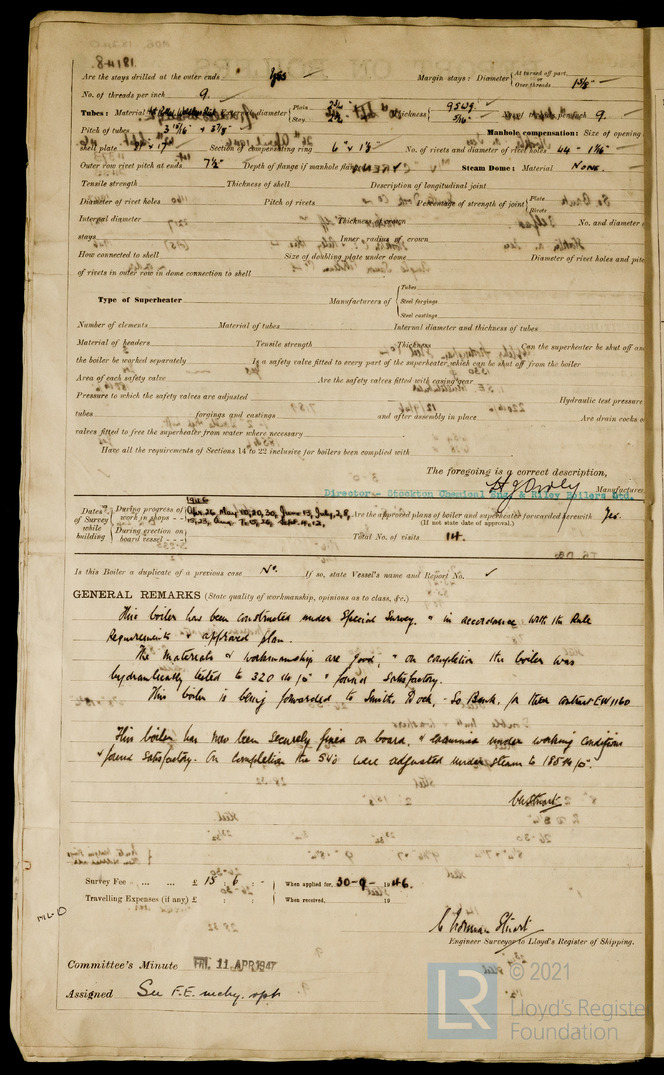 Are the stays drilled at the outer ends Yes Margin stays: Diameter { At turned off part, or Over threads 1 5/8"
No. of threads per inch 9.
Tubes: Material diameter { Plain Stay 2 3/4 Thickness { 9 SWG 5/16" threads per inch 9.
Pitch of tubes 3 15/16" × 3 7/8" Manhole compensation: Size of opening
shell plate Section of compensating ring 6" × 1 1/8" No. of rivets and diameter of rivet holes 44 - 1 1/16"
Outer row rivet pitch at ends 7 1/2" Depth of flange if manhole flanged Steam Dome: Material None.
Tensile strength Thickness of shell Description of longitudinal joint
Diameter of rivet holes Pitch of rivets Percentage of strength of joint { Plate Rivets
Internal diameter Thickness of crown No. and diameter
stays Inner radius of crown
How connected to shell Size of doubling plate under dome Diameter of rivet holes and pitc
of rivets in outer row in dome connection to shell
Type of Superheater Manufacturers of { Tubes Steel forgings Steel castings
Number of elements Material of tubes Internal diameter and thickness of tubes
Material of headers Tensile strength Thickness Can the superheater be shut off an
the boiler be worked separately Is a safety valve fitted to every part of the superheater which can be shut off from the boiler
Area of each safety valve Are the safety valves fitted with easing gear
Pressure to which the safety valves are adjusted Hydraulic test pressure
tubes forgings and castings and after assembly in place Are drain cocks o
valves fitted to free the superheater from water where necessary
Have all the requirements of Sections 14 to 22 inclusive for boilers been complied with
The foregoing is a correct description,
Manufacturer
Director - Stockton Chemical Eng. & Riley Boilers Ltd.
1946
Dates of Survey while building { During progress of work in shops - - Apr. 26, May 10, 20, 30, June 13, July 2, 8, 15, 23, Aug. 7, 15, 26, Sept. 4, 12, Are the approved plans of boiler and superheater forwarded herewith Yes.
(If not state date of approval.)
During erection on board vessel - - - Total No. of visits 14.
Is this Boiler a duplicate of a previous case No. If so, state Vessel's name and Report No.
GENERAL REMARKS (State quality of workmanship, opinions as to class, &c.)
This boiler has been constructed under Special Survey, & in accordance with the Rule
Requirements & approved plan.
The materials & workmanship are good, & on completion the boiler was
hydraulically tested to 320 lb/□" & found satisfactory.
This boiler is being forwarded to Smiths Dock, - So. Bank, for their contract EW1160
This boiler has now been securely fixed on board, & examined under working conditions
& found satisfactory. On completion the SVs were adjusted under steam to 185 lb/□".
CNStuart
Survey Fee ... ... £ 15 : 6 : - When applied for, 30-9- 1946.
Travelling Expenses (if any) £ : : When received, 19
C Norman Stuart
Engineer Surveyor to Lloyd's Register of Shipping.
Committee's Minute FRI. 11 APR 1947
Assigned See F.E. mchy. rpt
© 2021
LR
Lloyd's Register
Foundation